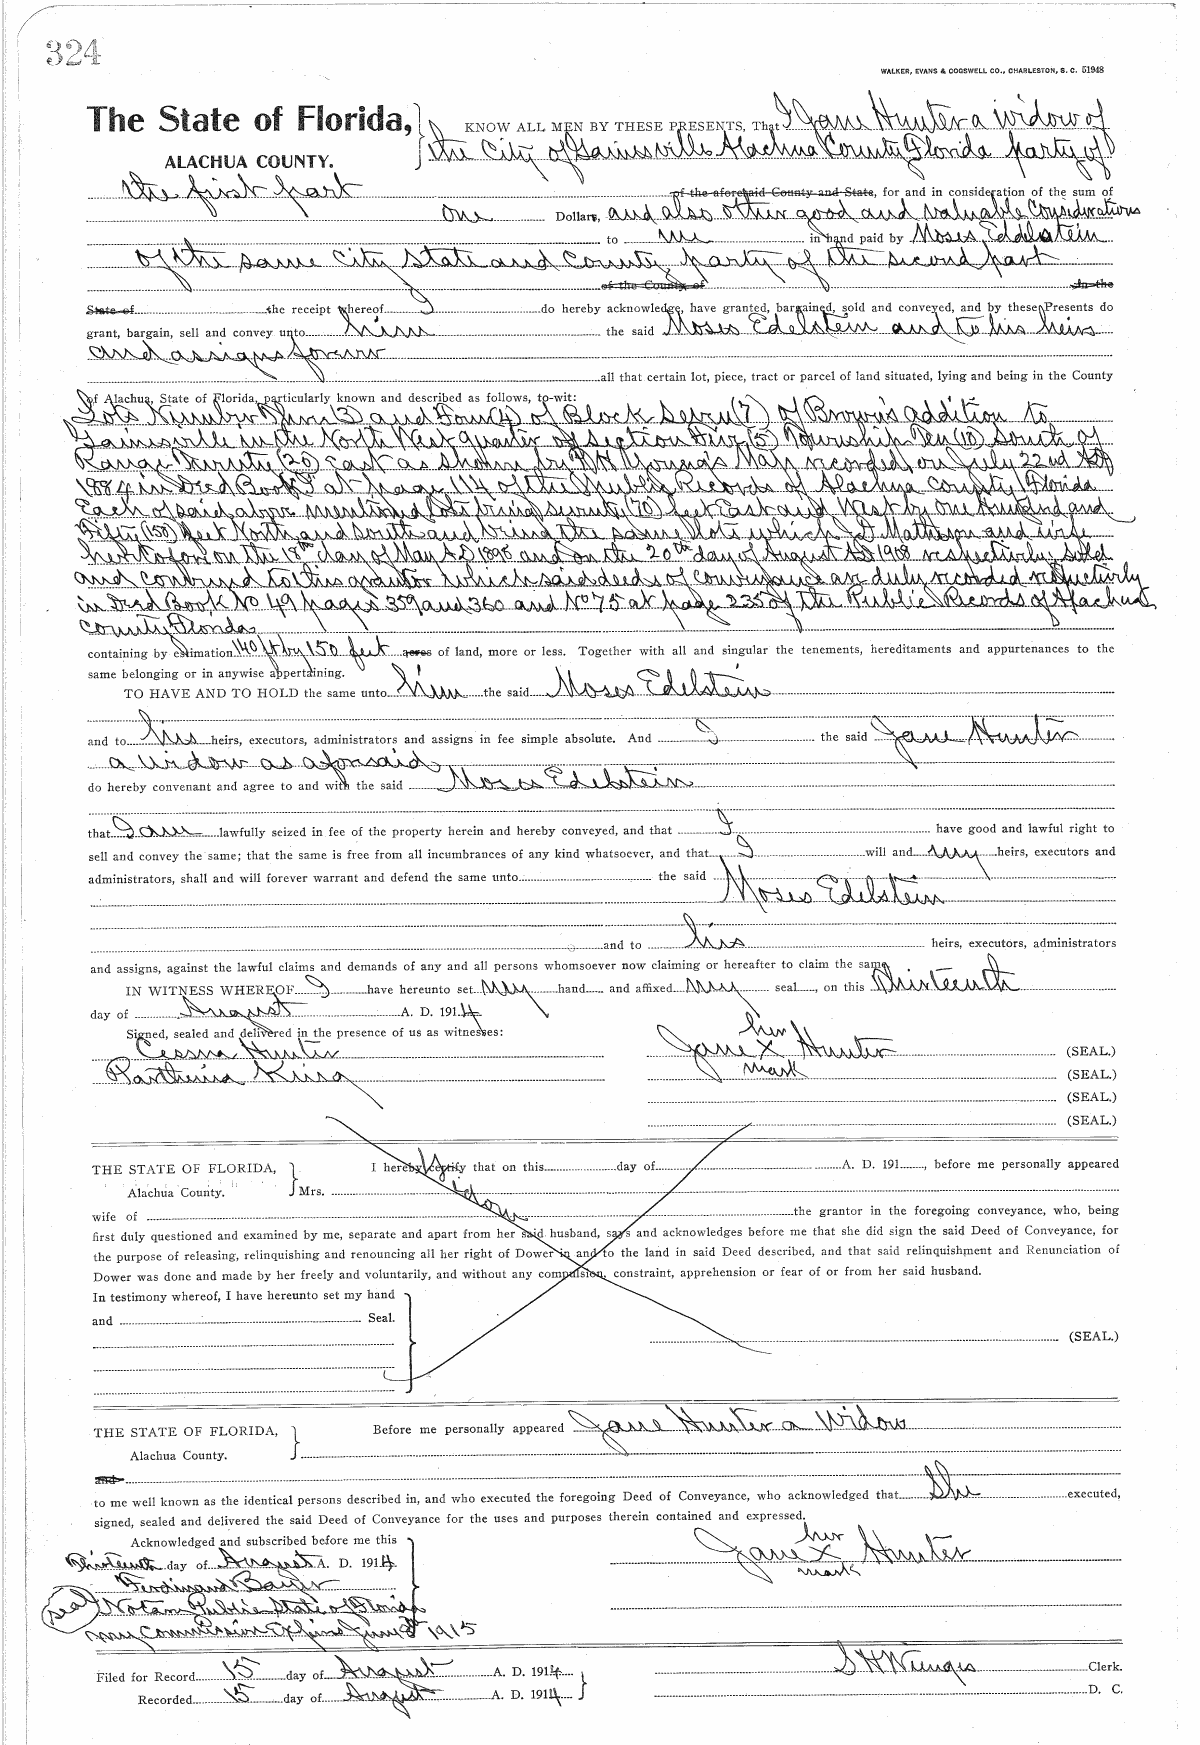 324
WALKER, EVANS & COGSWELL CO., CHARLESTON, S. C. 51948
The State of Florida, KNOW ALL MEN BY THESE PRESENTS, That I Jane Hunter a widow of
ALACHUA COUNTY. the City of Gainesville Alachua County Florida party of
the first part of the aforesaid County and State, for and in consideration of the sum of
One Dollars, and also other good and valuable Considerations
to me in hand paid by Moses Edelstein
of the same City State and County party of the second part
of the County of in the
State of the receipt whereof I do hereby acknowledge, have granted, bargained, sold and conveyed, and by these Presents do
grant, bargain, sell and convey unto him the said Moses Edelstein and to his heirs
and assigns forever
all that certain lot, piece, tract or parcel of land situated, lying and being in the County
of Alachua, State of Florida, particularly known and described as follows, to-wit:
Lots Number Three (3) and Four (4) of Block Seven (7) of Brown's addition to
Gainesville in the North West quarter of Section Five (5) Township Ten (10) South of
Range Twenty (20) East as shown by Young's Map recorded on July 22nd AD
1884 in Deed Book at page 114 of the Public Records of Alachua County Florida
Each of said above mentioned lots being seventy (70) feet East and West by one hundred and
Fifty (150) feet North and South and being the same lots which Matheson and wife
heretofore on the 18th day of May A.D 1895 and on the 20th day of August AD 1908 respectively sold
and conveyed to this grantor which said deeds of conveyance are duly recorded respectively
in Deed Book No 49 pages 359 and 360 and No 75 at page 235 of the Public Records of Alachua
County Florida
containing by estimation 140 ft by 150 feet acres of land, more or less. Together with all and singular the tenements, hereditaments and appurtenances to the
same belonging or in anywise appertaining.
TO HAVE AND TO HOLD the same unto him the said Moses Edelstein
and to his heirs, executors, administrators and assigns in fee simple absolute. And I the said Jane Hunter
a widow as aforesaid
do hereby convenant and agree to and with the said Moses Edelstein
that I am lawfully seized in fee of the property herein and hereby conveyed, and that I have good and lawful right to
sell and convey the same; that the same is free from all incumbrances of any kind whatsoever, and that I will and my heirs, executors and
administrators, shall and will forever warrant and defend the same unto the said
Moses Edelstein
and to his heirs, executors, administrators
and assigns, against the lawful claims and demands of any and all persons whomsoever now claiming or hereafter to claim the same.
IN WITNESS WHEREOF I have hereunto set my hand and affixed my seal, on this Thirteenth
day of August A. D. 1914
Signed, sealed and delivered in the presence of us as witnesses: her
Cessna Hunter Jane X Hunter (SEAL.)
Parthenia King mark (SEAL.)
(SEAL.)
(SEAL.)
THE STATE OF FLORIDA, I hereby certify that on this day of A. D. 191 , before me personally appeared
Alachua County. Mrs. Widow
wife of the grantor in the foregoing conveyance, who, being
first duly questioned and examined by me, separate and apart from her said husband, says and acknowledges before me that she did sign the said Deed of Conveyance, for
the purpose of releasing, relinquishing and renouncing all her right of Dower in and to the land in said Deed described, and that said relinquishment and Renunciation of
Dower was done and made by her freely and voluntarily, and without any compulsion, constraint, apprehension or fear of or from her said husband.
In testimony whereof, I have hereunto set my hand
and Seal.
(SEAL.)
THE STATE OF FLORIDA, Before me personally appeared Jane Hunter a Widow
Alachua County.
and
to me well known as the identical persons described in, and who executed the foregoing Deed of Conveyance, who acknowledged that She executed,
signed, sealed and delivered the said Deed of Conveyance for the uses and purposes therein contained and expressed.
Acknowledged and subscribed before me this her
Thirteenth day of August A. D. 1914 Jane X Hunter
Ferdinand Bayer mark
seal Notary Public State of Florida
my Commission Expires June 1915
Filed for Record 15 day of August A. D. 1914 S H Wienges Clerk.
Recorded 15 day of August A. D. 1914 D. C.